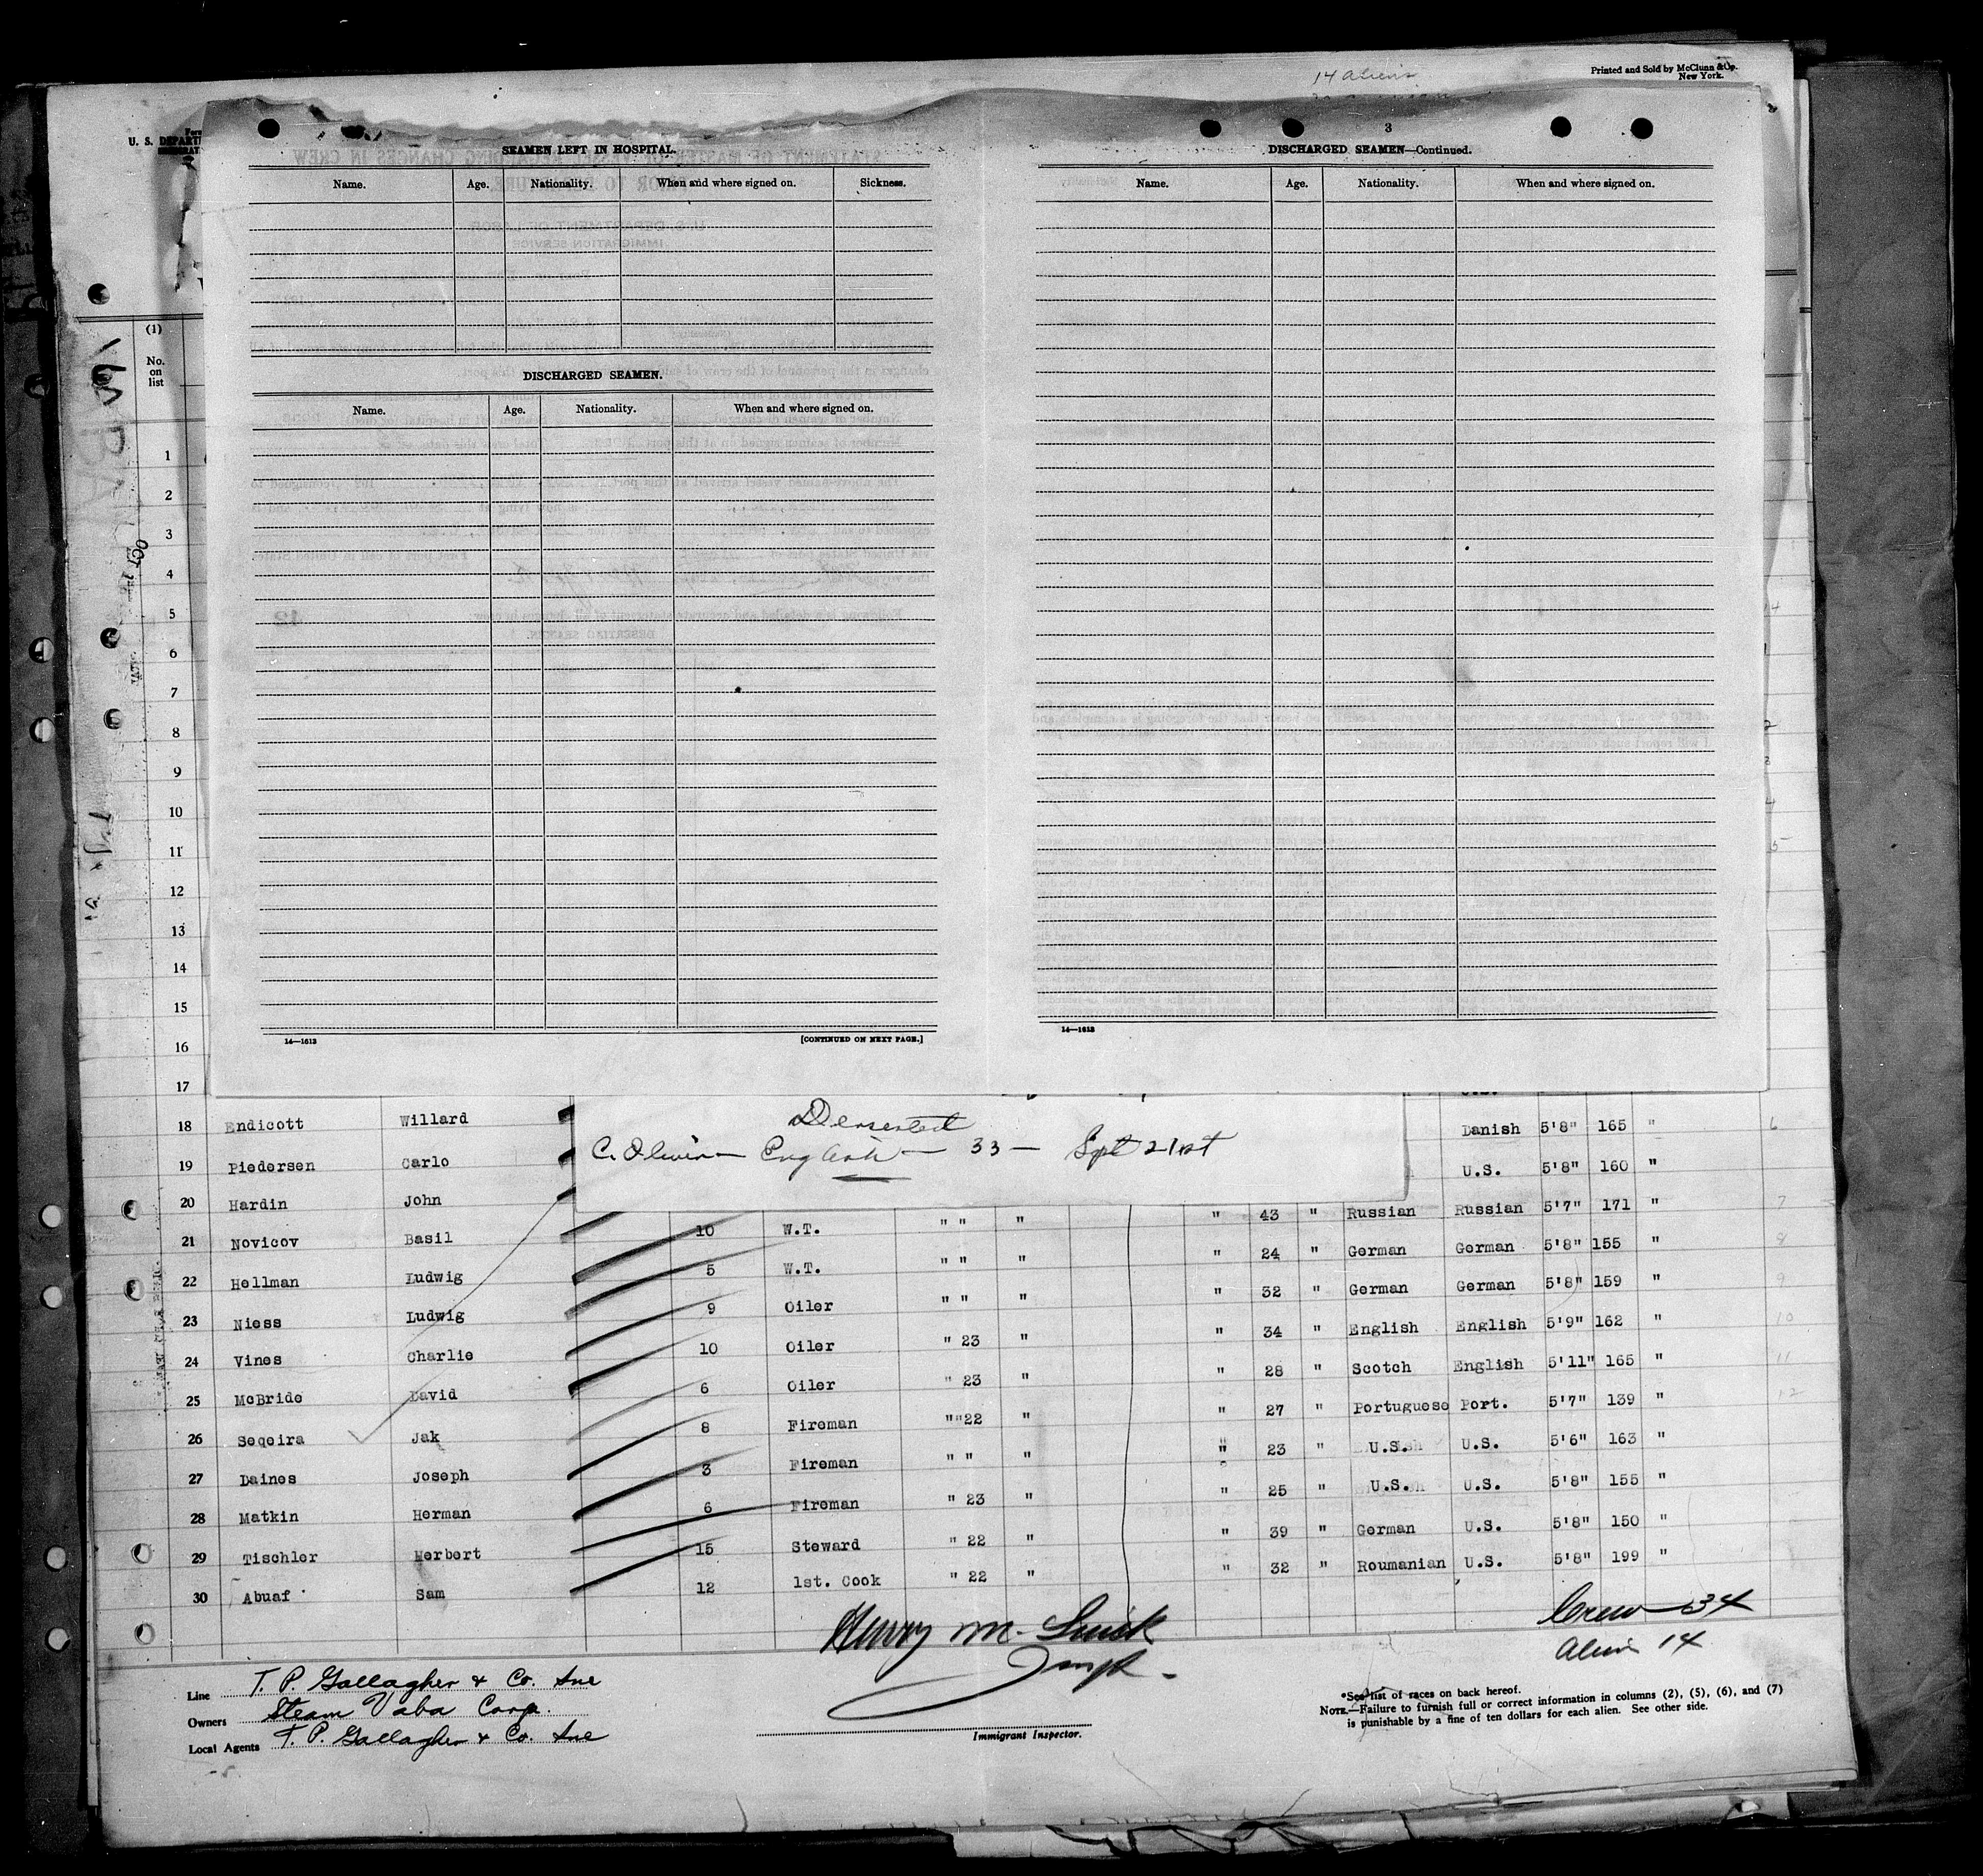 14 aliens
Printed and Sold by McClunn & Co.
New York.
U. S. DEPART
SEAMEN LEFT IN HOSPITAL.
Name. Age. Nationality. When and where signed on. Sickness.
DISCHARGED SEAMEN.
Name. Age. Nationality. When and where signed on.
14—1613 [CONTINUED ON NEXT PAGE.]
3
DISCHARGED SEAMEN—Continued.
Name. Age. Nationality. When and where signed on.
14—1613
(1)
No.
on
list
1
2
3
4
5
6
7
8
9
10
11
12
13
14
15
16
17
Deserted
C. Olivir — English — 33 — Sept 21st
18 Endicott Willard Danish 5'8" 165 " 6
19 Piedersen Carlo U.S. 5'8" 160 "
20 Hardin John Russian Russian 5'7" 171 " 7
21 Novicov Basil 10 W.T. " " " " 43 "
22 Hellman Ludwig 5 W.T. " " " " 24 " German German 5'8" 155 " 8
23 Niess Ludwig 9 Oiler " " " " 32 " German German 5'8" 159 " 9
24 Vines Charlie 10 Oiler " 23 " " 34 " English English 5'9" 162 " 10
25 McBride David 6 Oiler " 23 " " 28 " Scotch English 5'11" 165 " 11
26 Seqeira Jak 8 Fireman " " 22 " " 27 " Portuguese Port. 5'7" 139 " 12
27 Daines Joseph 3 Fireman " " " " 23 " U.S. U.S. 5'6" 163 "
28 Matkin Herman 6 Fireman " 23 " " 25 " U.S. U.S. 5'8" 155 "
29 Tischler Herbert 15 Steward " 22 " " 39 " German U.S. 5'8" 150 "
30 Abuaf Sam 12 1st. Cook " 22 " " 32 " Roumanian U.S. 5'8" 199 "
Crew 34
Alien 14
Henry M.
Insp.
Immigrant Inspector.
Line T. P. Gallagher & Co. Inc
Owners Steam Vaba Corp.
Local Agents T. P. Gallagher & Co. Inc
*See list of races on back hereof.
NOTE.—Failure to furnish full or correct information in columns (2), (5), (6), and (7)
is punishable by a fine of ten dollars for each alien. See other side.